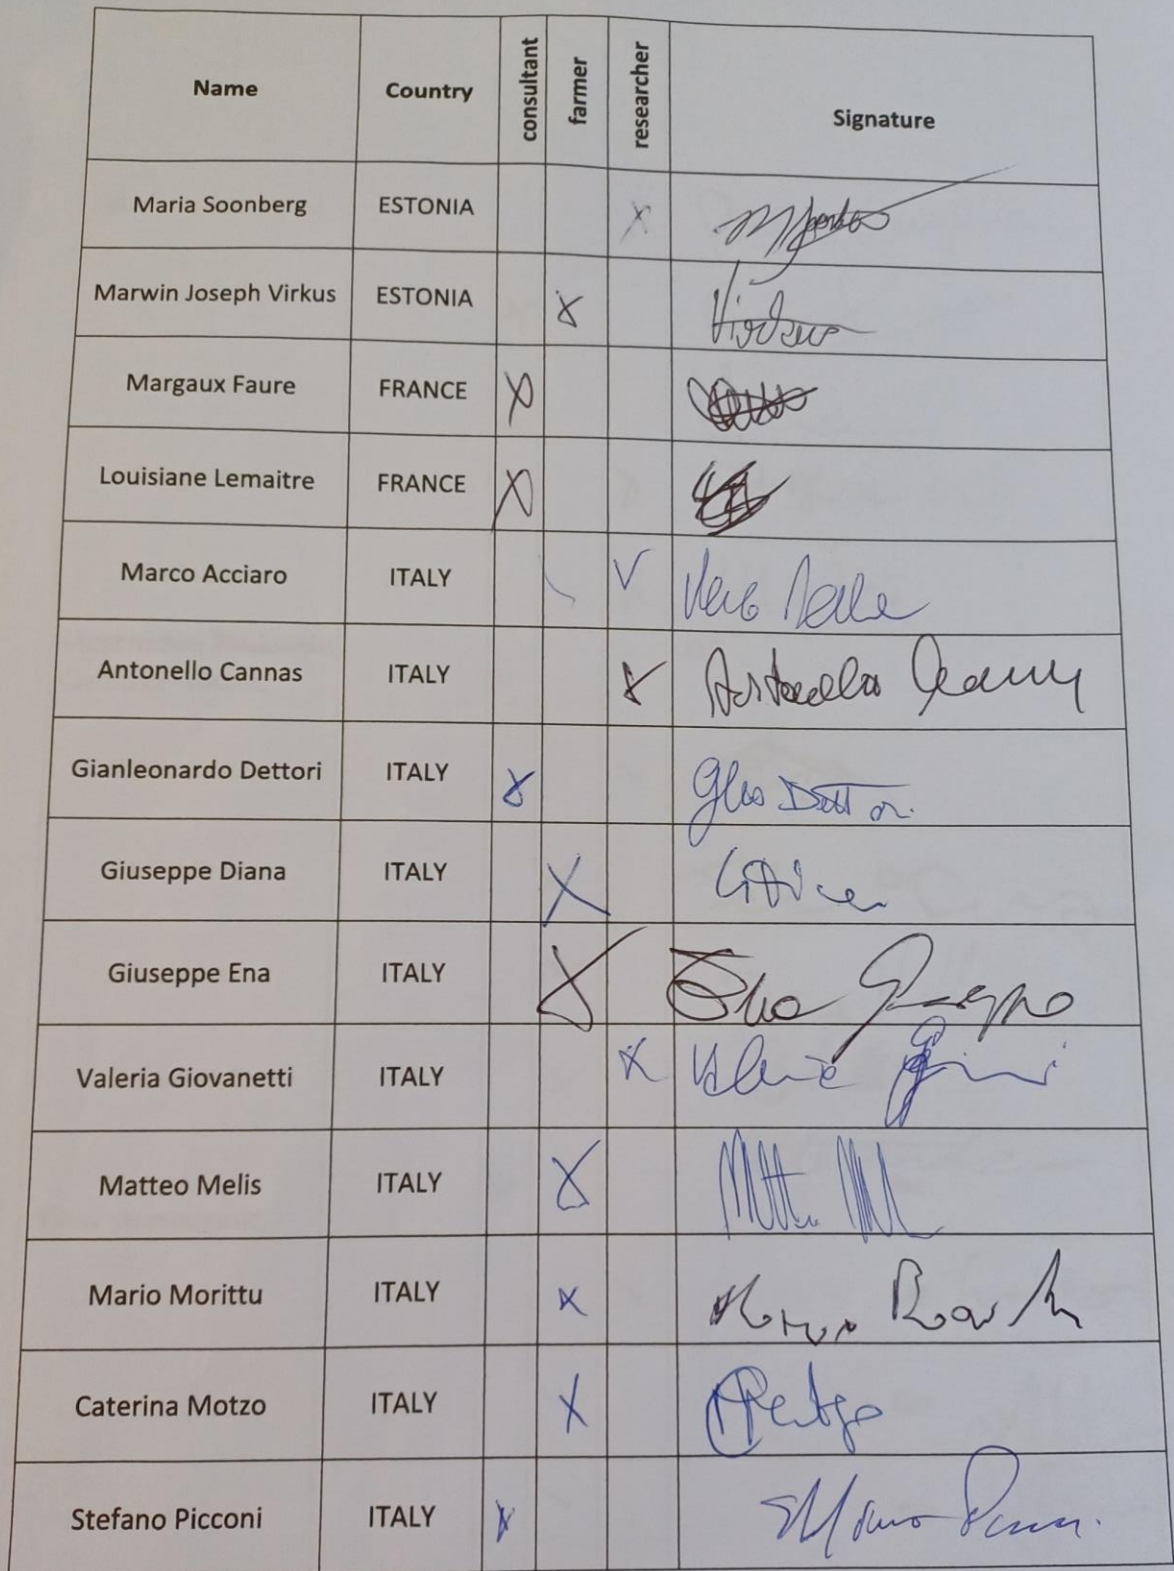 Name Country consultant farmer researcher Signature
Maria Soonberg ESTONIA X
Marwin Joseph Virkus ESTONIA X Virkus
Margaux Faure FRANCE X
Louisiane Lemaitre FRANCE X
Marco Acciaro ITALY V
Antonello Cannas ITALY X Antonello Cannas
Gianleonardo Dettori ITALY X
Giuseppe Diana ITALY X
Giuseppe Ena ITALY X Ena Giuseppe
Valeria Giovanetti ITALY X
Matteo Melis ITALY X
Mario Morittu ITALY X
Caterina Motzo ITALY X
Stefano Picconi ITALY X